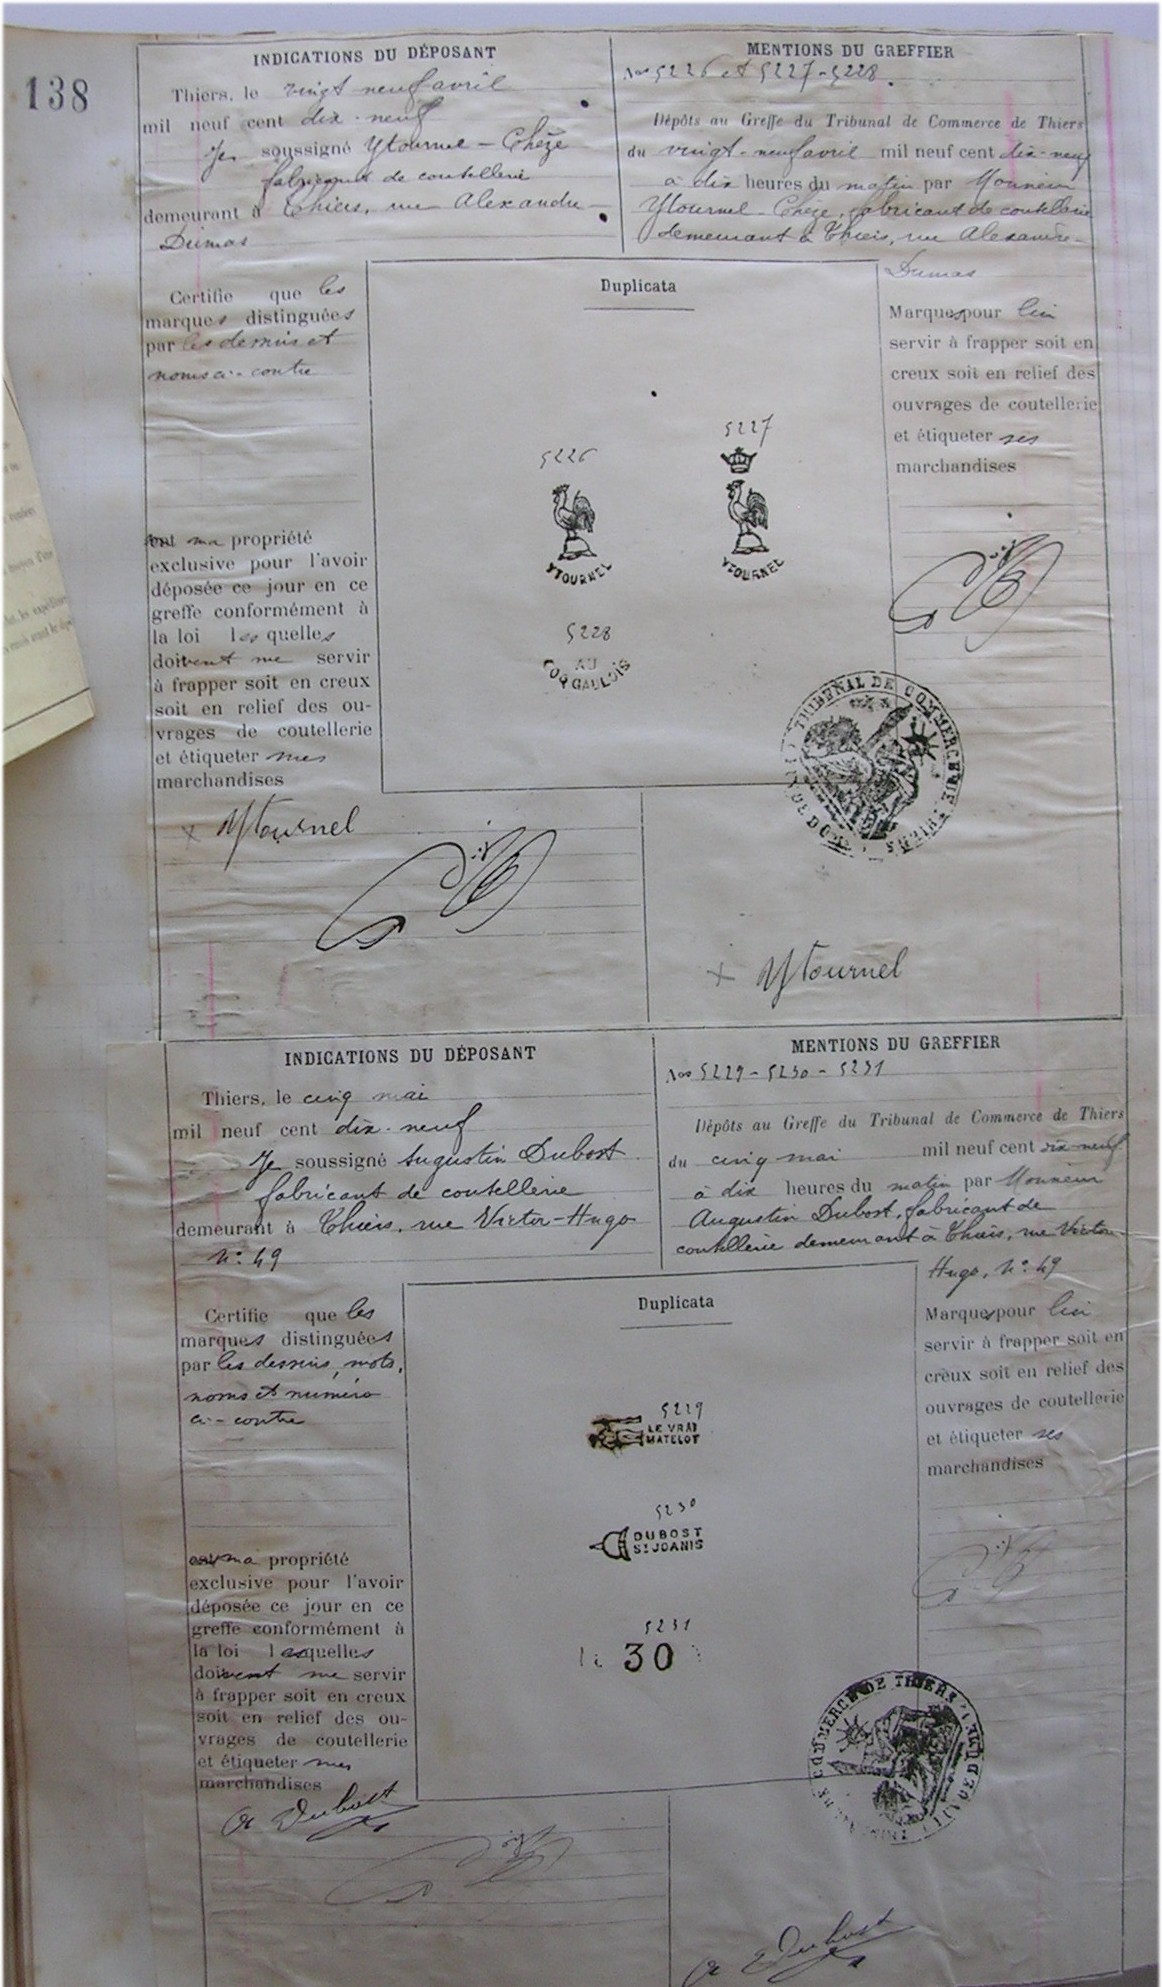 138
INDICATIONS DU DÉPOSANT
Thiers, le vingt neuf avril
mil neuf cent dix-neuf
Je soussigné Ytournel-Chèze
fabricant de coutellerie
demeurant à Thiers, rue Alexandre-
Dumas
MENTIONS DU GREFFIER
Nos 5226 et 5227-5228
Dépôts au Greffe du Tribunal de Commerce de Thiers
du vingt-neuf avril mil neuf cent dix-neuf
à dix heures du matin par Monsieur
Ytournel-Chèze, fabricant de coutellerie
demeurant à Thiers, rue Alexandre-
Dumas
Certifie que les
marques distinguées
par les dessins et
noms ci-contre
sont ma propriété
exclusive pour l'avoir
déposée ce jour en ce
greffe conformément à
la loi lesquelles
doivent me servir
à frapper soit en creux
soit en relief des ou-
vrages de coutellerie
et étiqueter mes
marchandises
Ytournel
Duplicata
5226
YTOURNEL
5227
YTOURNEL
5228
AU
COQ GAULOIS
Marques pour lui
servir à frapper soit en
creux soit en relief des
ouvrages de coutellerie
et étiqueter ses
marchandises
TRIBUNAL DE COMMERCE DE THIERS
Ytournel
INDICATIONS DU DÉPOSANT
Thiers, le cinq mai
mil neuf cent dix-neuf
Je soussigné Augustin Dubost
fabricant de coutellerie
demeurant à Thiers, rue Victor-Hugo
N° 49
MENTIONS DU GREFFIER
Nos 5229-5230-5231
Dépôts au Greffe du Tribunal de Commerce de Thiers
du cinq mai mil neuf cent dix-neuf
à dix heures du matin par Monsieur
Augustin Dubost, fabricant de
coutellerie demeurant à Thiers, rue Victor-
Hugo, N° 49
Certifie que les
marques distinguées
par les dessins, mots,
noms et numéro
ci-contre
ma propriété
exclusive pour l'avoir
déposée ce jour en ce
greffe conformément à
la loi lesquelles
doivent me servir
à frapper soit en creux
soit en relief des ou-
vrages de coutellerie
et étiqueter mes
marchandises
A Dubost
Duplicata
5229
LE VRAI
MATELOT
5230
DUBOST
ST JOANIS
5231
30
Marques pour lui
servir à frapper soit en
creux soit en relief des
ouvrages de coutellerie
et étiqueter ses
marchandises
COMMERCE DE THIERS
A Dubost